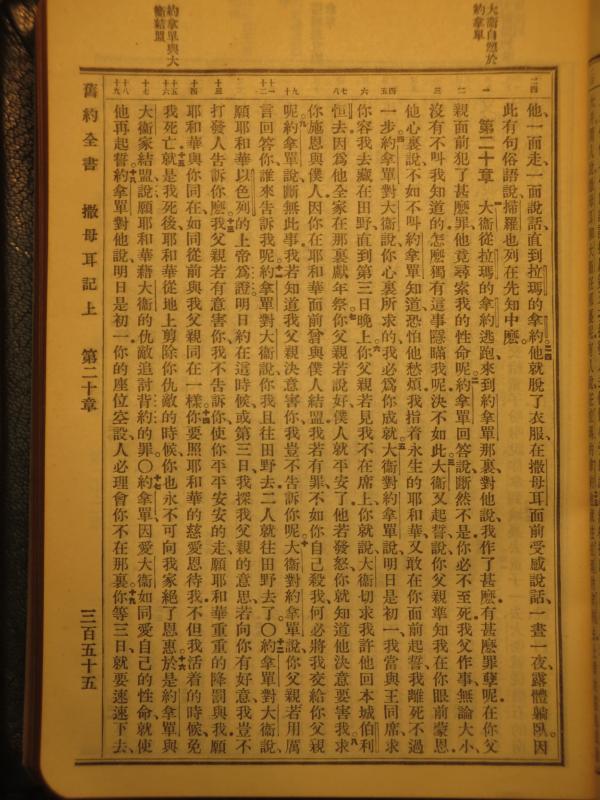 大衛自愬於
約拿單
約拿單與大
衛結盟
二四
他一面走、一面說話、直到拉瑪的拿約。二四他就脫了衣服、在撒母耳面前受感說話、一晝一夜、露體躺臥、因
此有句俗語說、掃羅也列在先知中麽。
一
第二十章 一大衛從拉瑪的拿約逃跑、來到約拿單那裏、對他說、我作了甚麽、有甚麽罪孽呢、在你父
二
親面前犯了甚麽罪、他竟尋索我的性命呢。二約拿單回答說、斷然不是、你必不至死、我父作事、無論大小、
三
沒有不叫我知道的、怎麽獨有這事隱瞞我呢、決不如此。三大衛又起誓說、你父親準知我在你眼前蒙恩、
他心裏說、不如不叫約拿單知道、恐怕他愁煩、我指着永生的耶和華、又敢在你面前起誓、我離死不過
四五
一步。四約拿單對大衛說、你心裏所求的、我必爲你成就。五大衛對約拿單說、明日是初一、我當與王同席、求
六
你容我去藏在田野、直到第三日晚上。六你父親若見我不在席上、你就說、大衛切求我許他回本城伯利
七八
恒去、因爲他全家在那裏獻年祭。七你父親若說好、僕人就平安了、他若發怒、你就知道他決意要害我。八求
你施恩與僕人、因你在耶和華面前曾與僕人結盟、我若有罪、不如你自己殺我、何必將我交給你父親
九十
呢。九約拿單說、斷無此事、我若知道我父親決意害你、我豈不告訴你呢。十大衛對約拿單說、你父親若用厲
十一十二
言回答你、誰來告訴我呢。十一約拿單對大衛說、你我且往田野去、二人就往田野去了。〇十二約拿單對大衛說、
願耶和華以色列的上帝爲證、明日約在這時候、或第三日、我探我父親的意思、若向你有好意、我豈不
十三
打發人告訴你麽。十三我父親若有意害你、我不告訴你、使你平平安安的走、願耶和華重重的降罰與我、願
十四
耶和華與你同在、如同從前與我父親同在一樣。十四你要照耶和華的慈愛恩待我、不但我活着的時候免
十五十六
我死亡、十五就是我死後、耶和華從地上剪除你仇敵的時候、你也永不可向我家絕了恩惠。十六於是約拿單與
十七
大衛家結盟說、願耶和華藉大衛的仇敵追討背約的罪。〇十七約拿單因愛大衛如同愛自己的性命、就使
十八十九
他再起誓。十八約拿單對他說、明日是初一、你的座位空設、人必理會你不在那裏。十九你等三日、就要速速下去、
舊約全書 撒母耳記上 第二十章 三百五十五